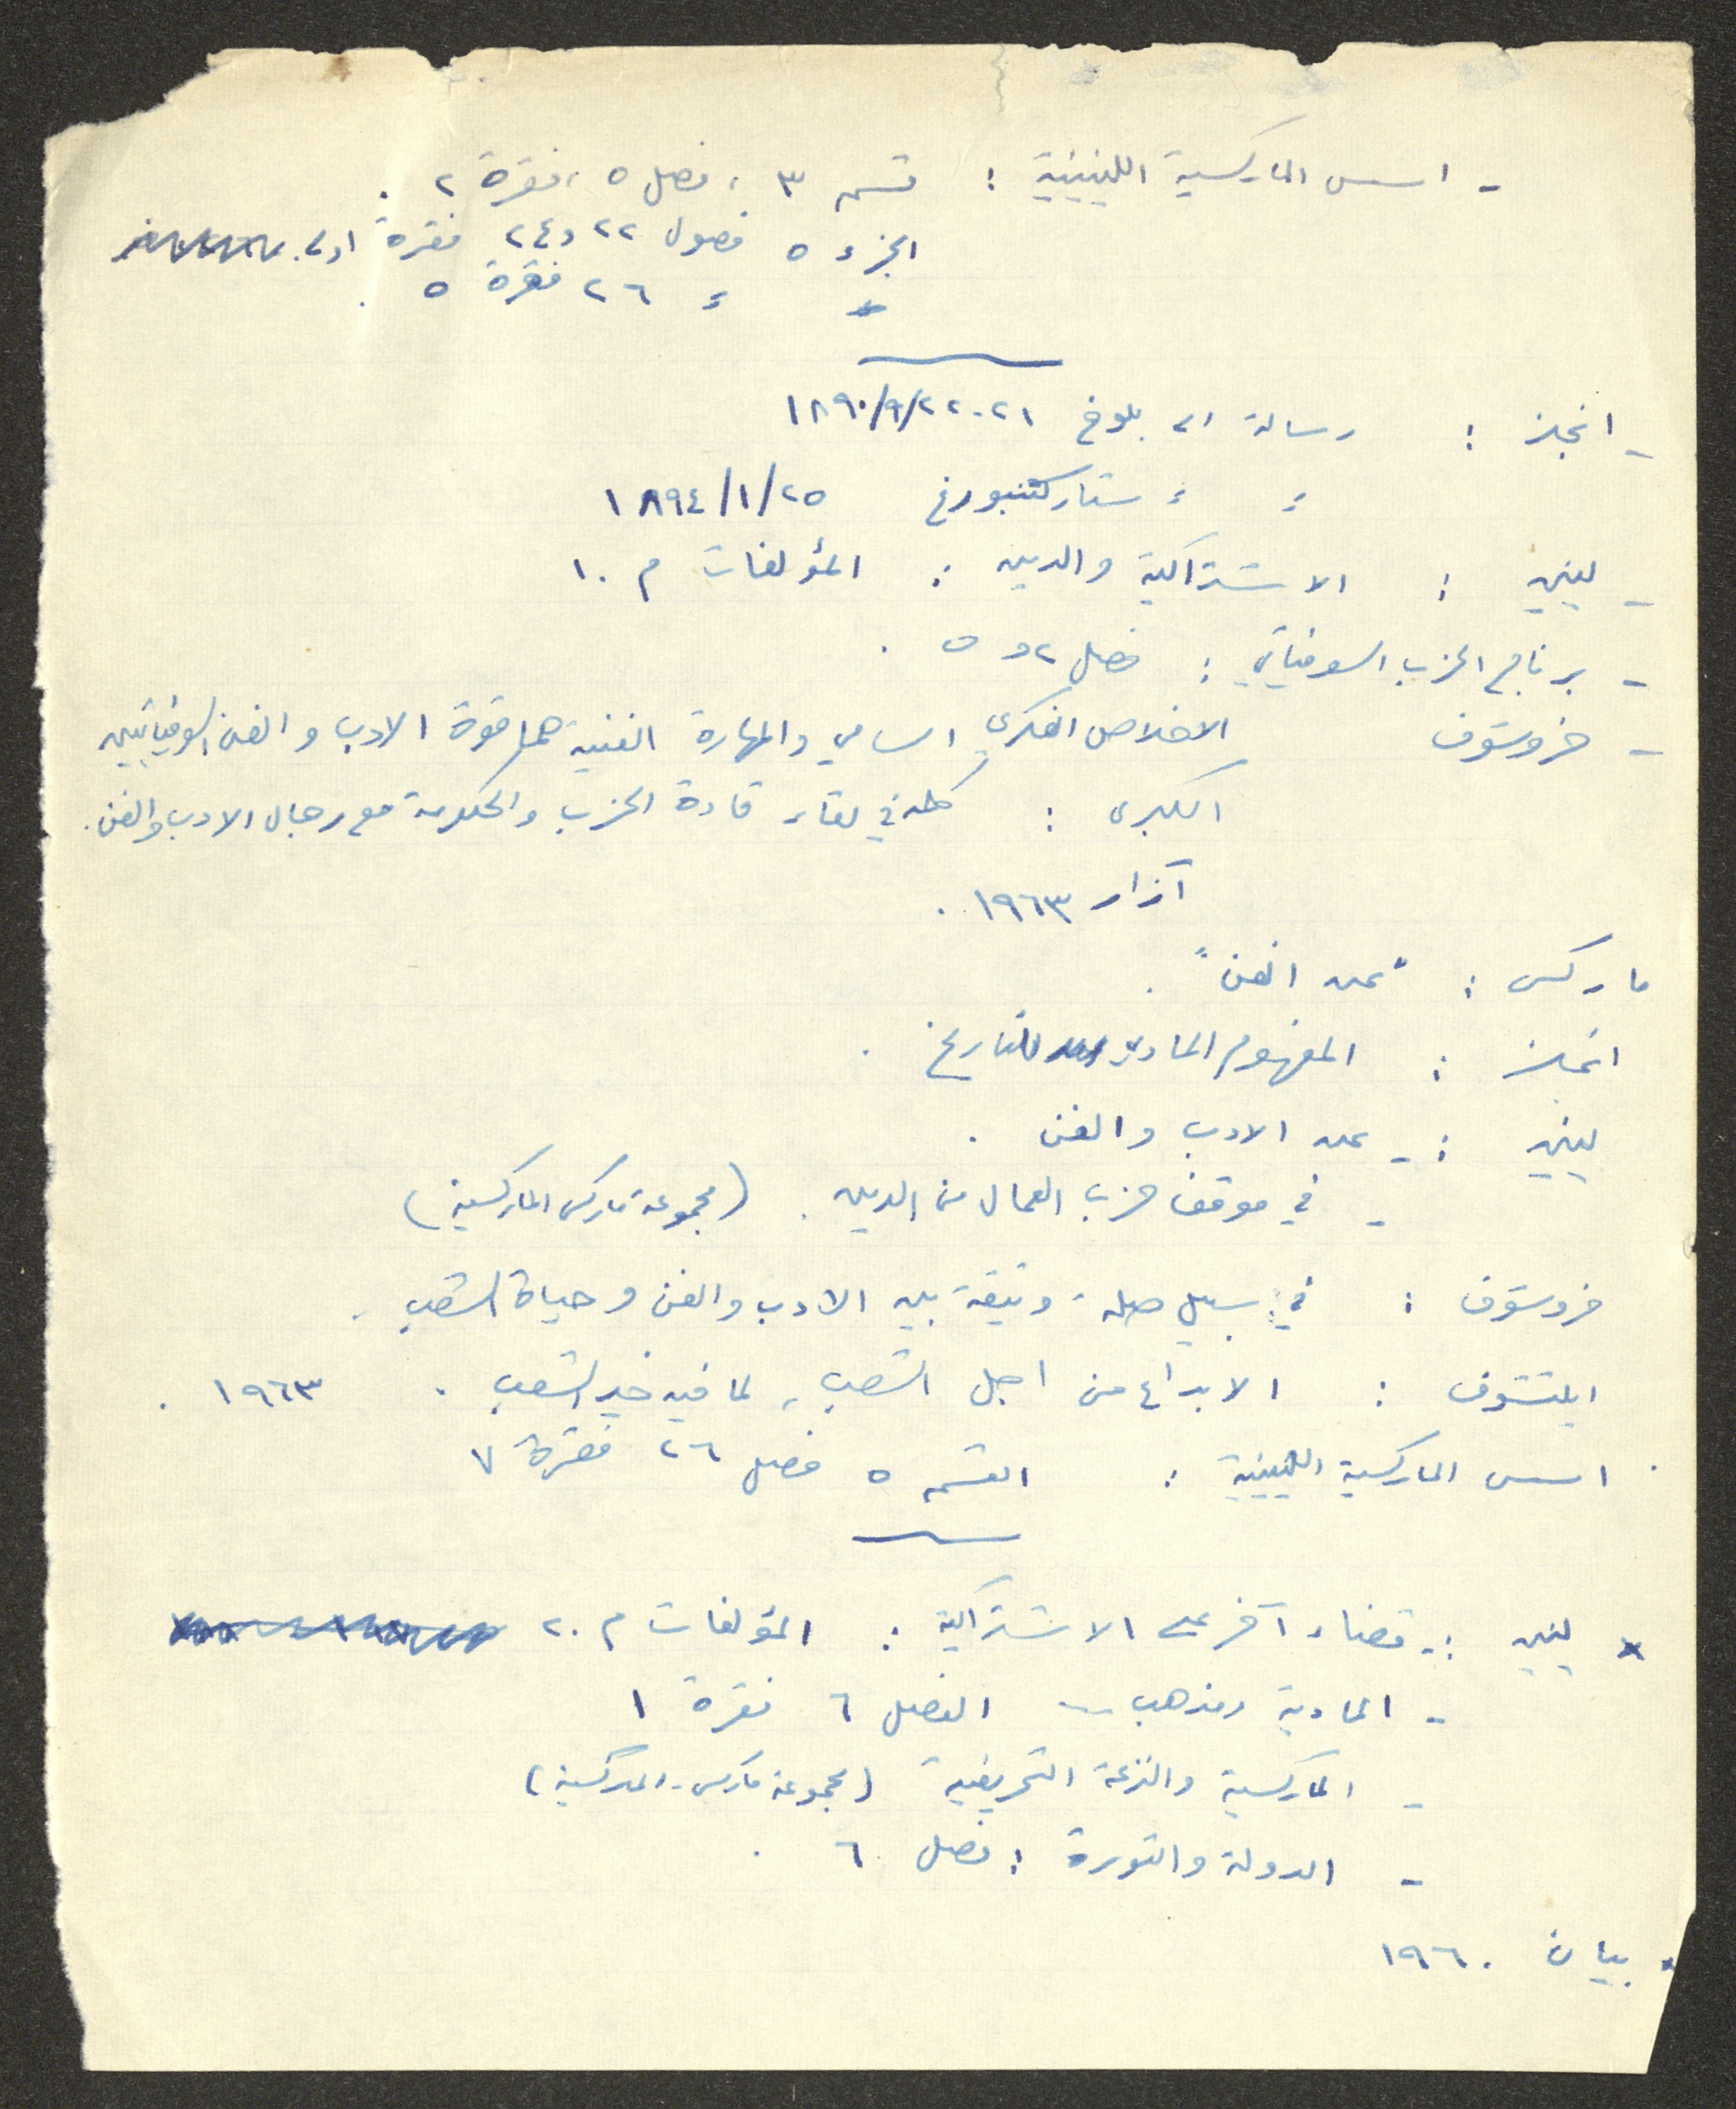 - اسس الماركسية اللينينية : قسم ٣ ، فصل ٥ ، فقرة ٢ .
الجزء ٥ فصول ٢٢ و ٢٤ فقرة اولى .
" " ٢٦ فقرة ٥ .
- انجلز : رسالة الى بلوخ ٢١-٢٢/٩/١٨٩٠
" " ستاركنبورغ ٢٥/١/١٨٩٤
- لينين : الاشتراكية والدين : المؤلفات م ١٠
- برنامج الحزب السوفياتي : فصل ٢ و ٥ .
- خروستوف الاخلاص الفكري السامي والمهارة الفنية هما قوة الادب والفن السوفياتيين
الكبرى : كلمة في لقاء قادة الحزب والحكومة مع رجال الادب والفن .
آزار ١٩٦٣ .
ماركس : "عن الفن" .
انجلز : المفهوم المادي للتاريخ .
لينين : - عن الادب والفن .
- في موقف حزب العمال من الدين . (مجموعة ماركس الماركسية)
خروستوف : في سبيل صلة وثيقة بين الادب والفن وحياة الشعب .
ايلتشوف : الابداع من اجل الشعب ، لما فيه خير الشعب . ١٩٦٣ .
. اسس الماركسية اللينينية : القسم ٥ فصل ٢٦ فقرة ٧
x لينين : - قضاء آخر على الاشتراكية : المؤلفات م ٢٠
- المادية ومذهب ـــ الفصل ٦ فقرة ١
- الماركسية والنزعة التحريفية (مجموعة ماركس - الماركسية)
- الدولة والثورة : فصل ٦ .
. بيان ١٩٦٠